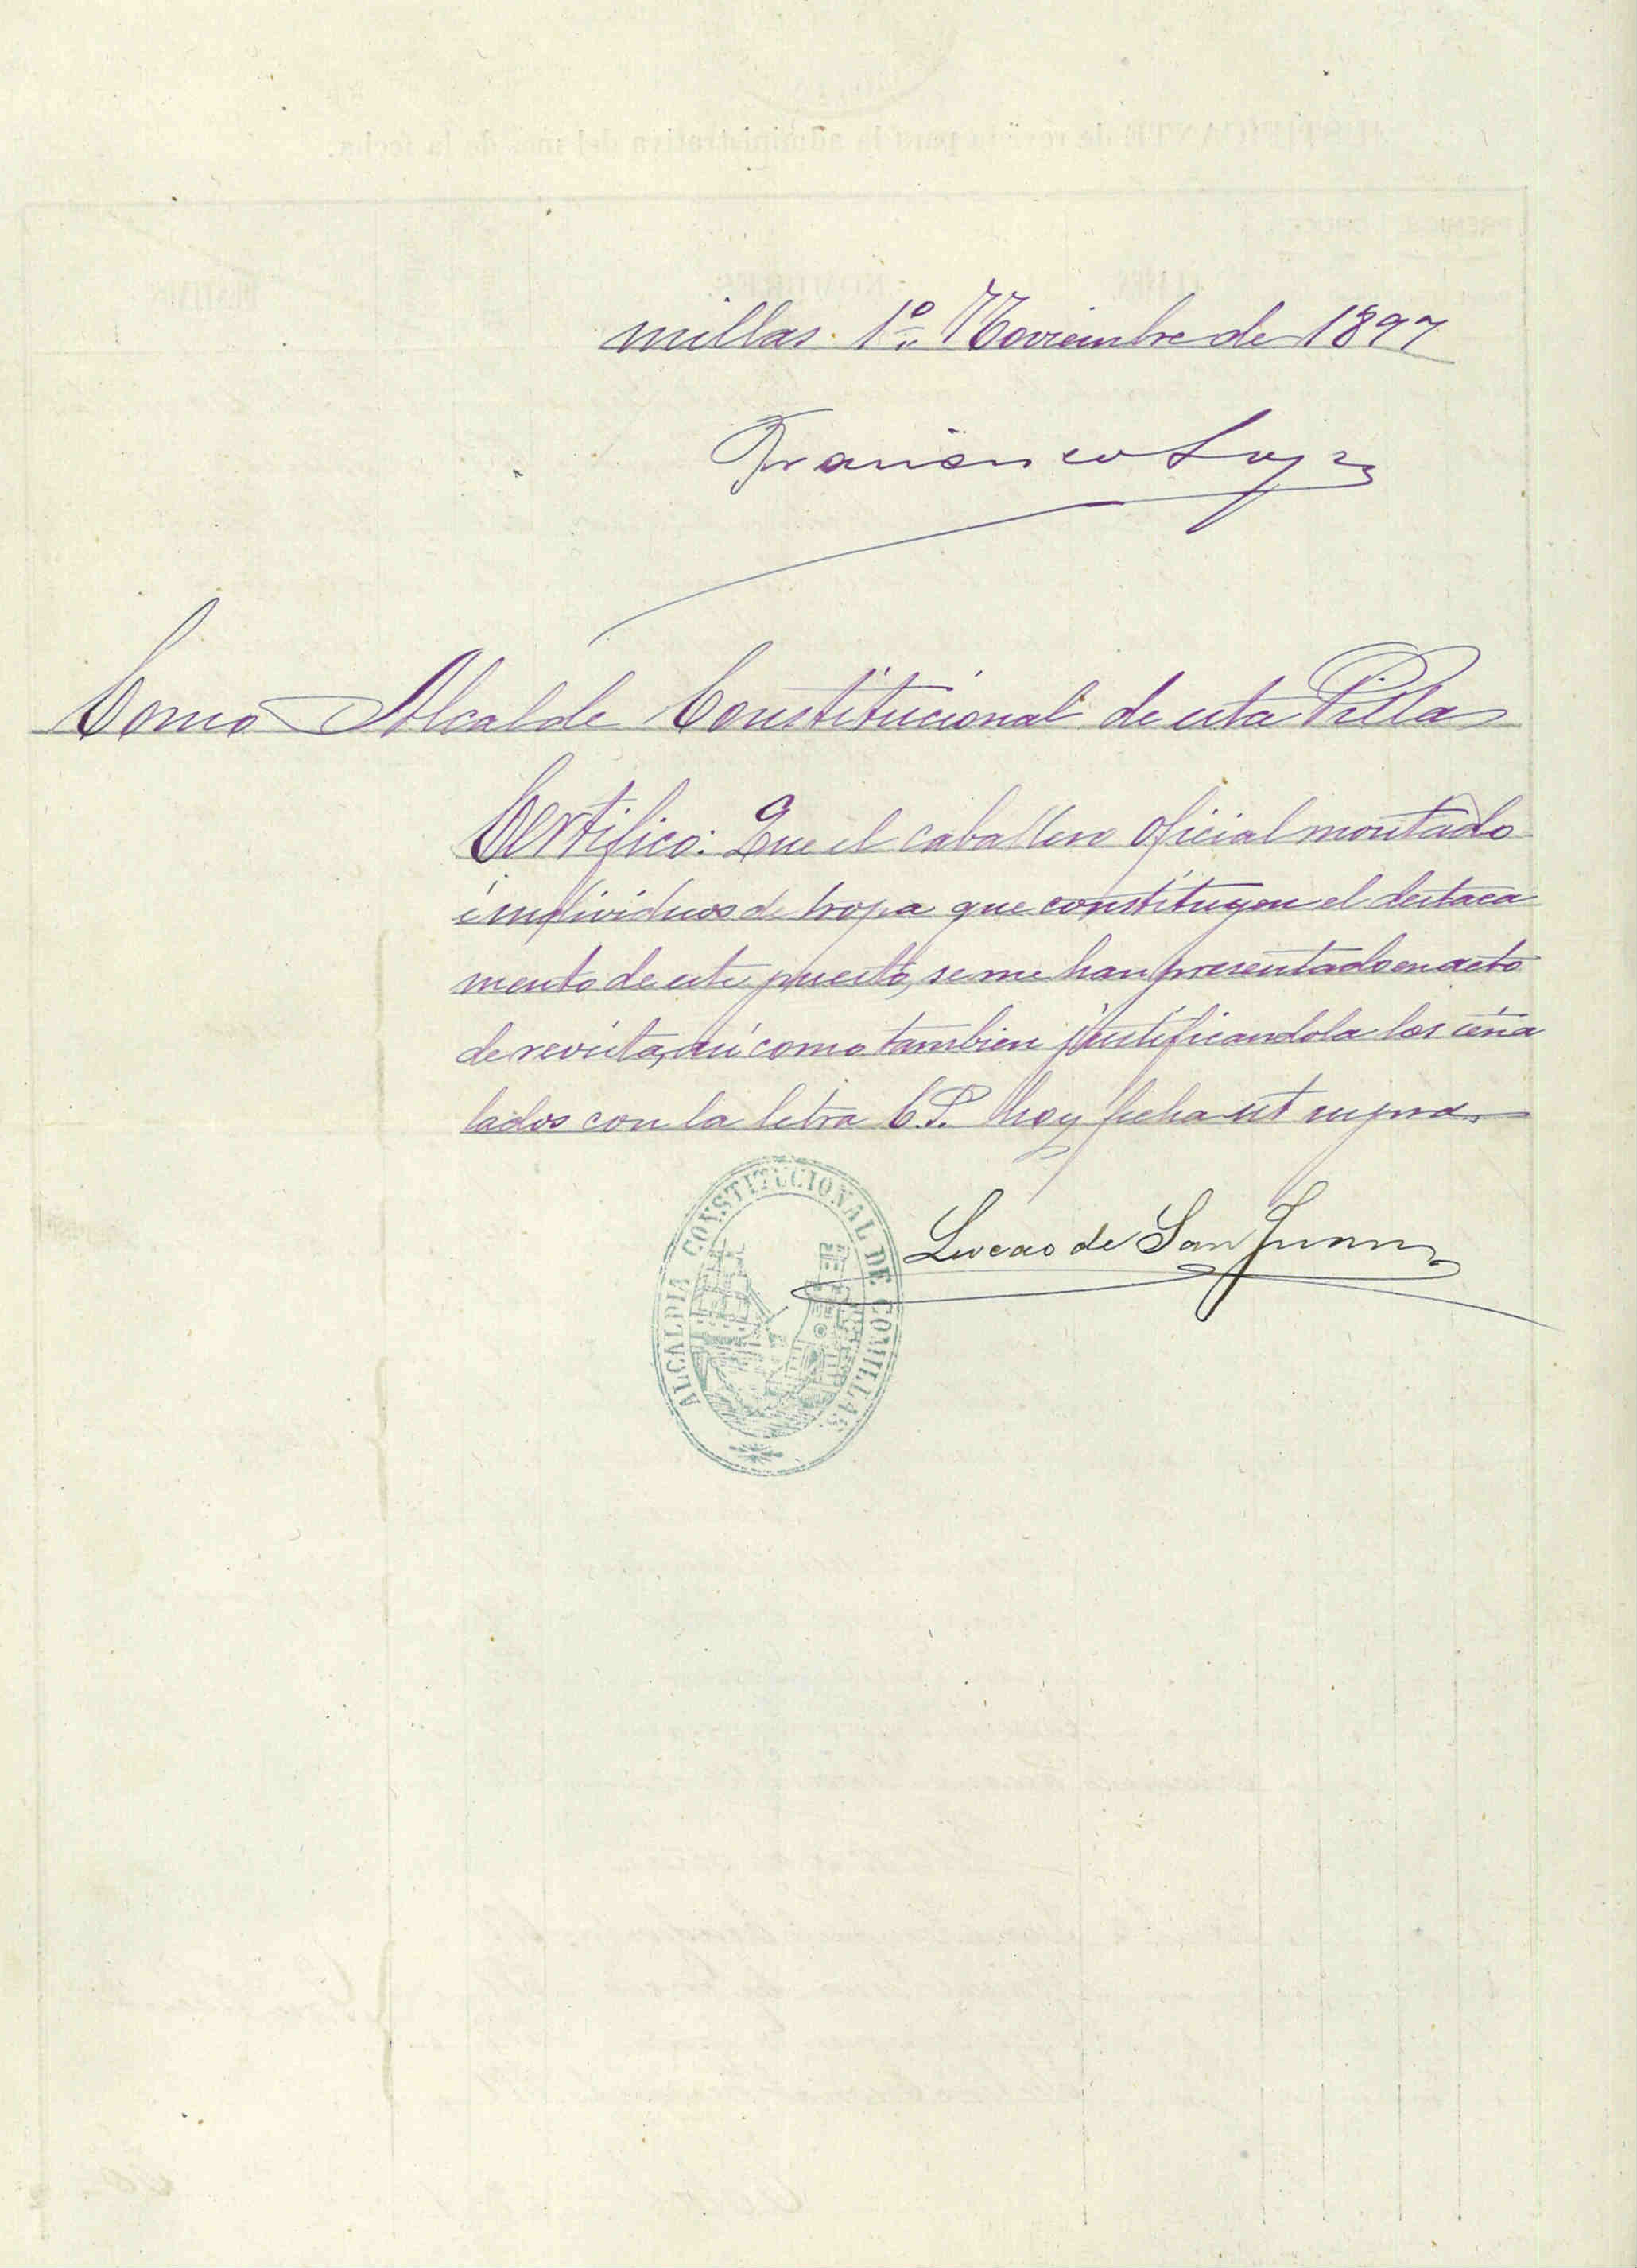 millas 1º Noviembre de 1897
Francisco
Como Alcalde Constitucional de esta Villa
Certifico: Que el caballero oficial montado
é individuos de tropa que constituyen el destaca
mento de este puesto, se me han presentado en acto
de revista, así como tambien justificandola los ceña
lados con la letra C.P. hoy fecha ut supra.
Lucas de San Juan
ALCALDIA CONSTITUCIONAL DE COMILLAS